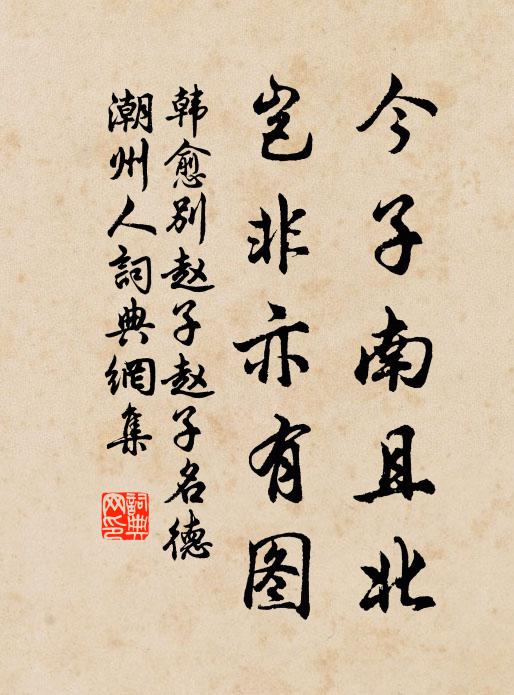 今子南且北
岂非亦有图
韩愈别赵子赵子名德
潮州人詞典網集
詞典网印